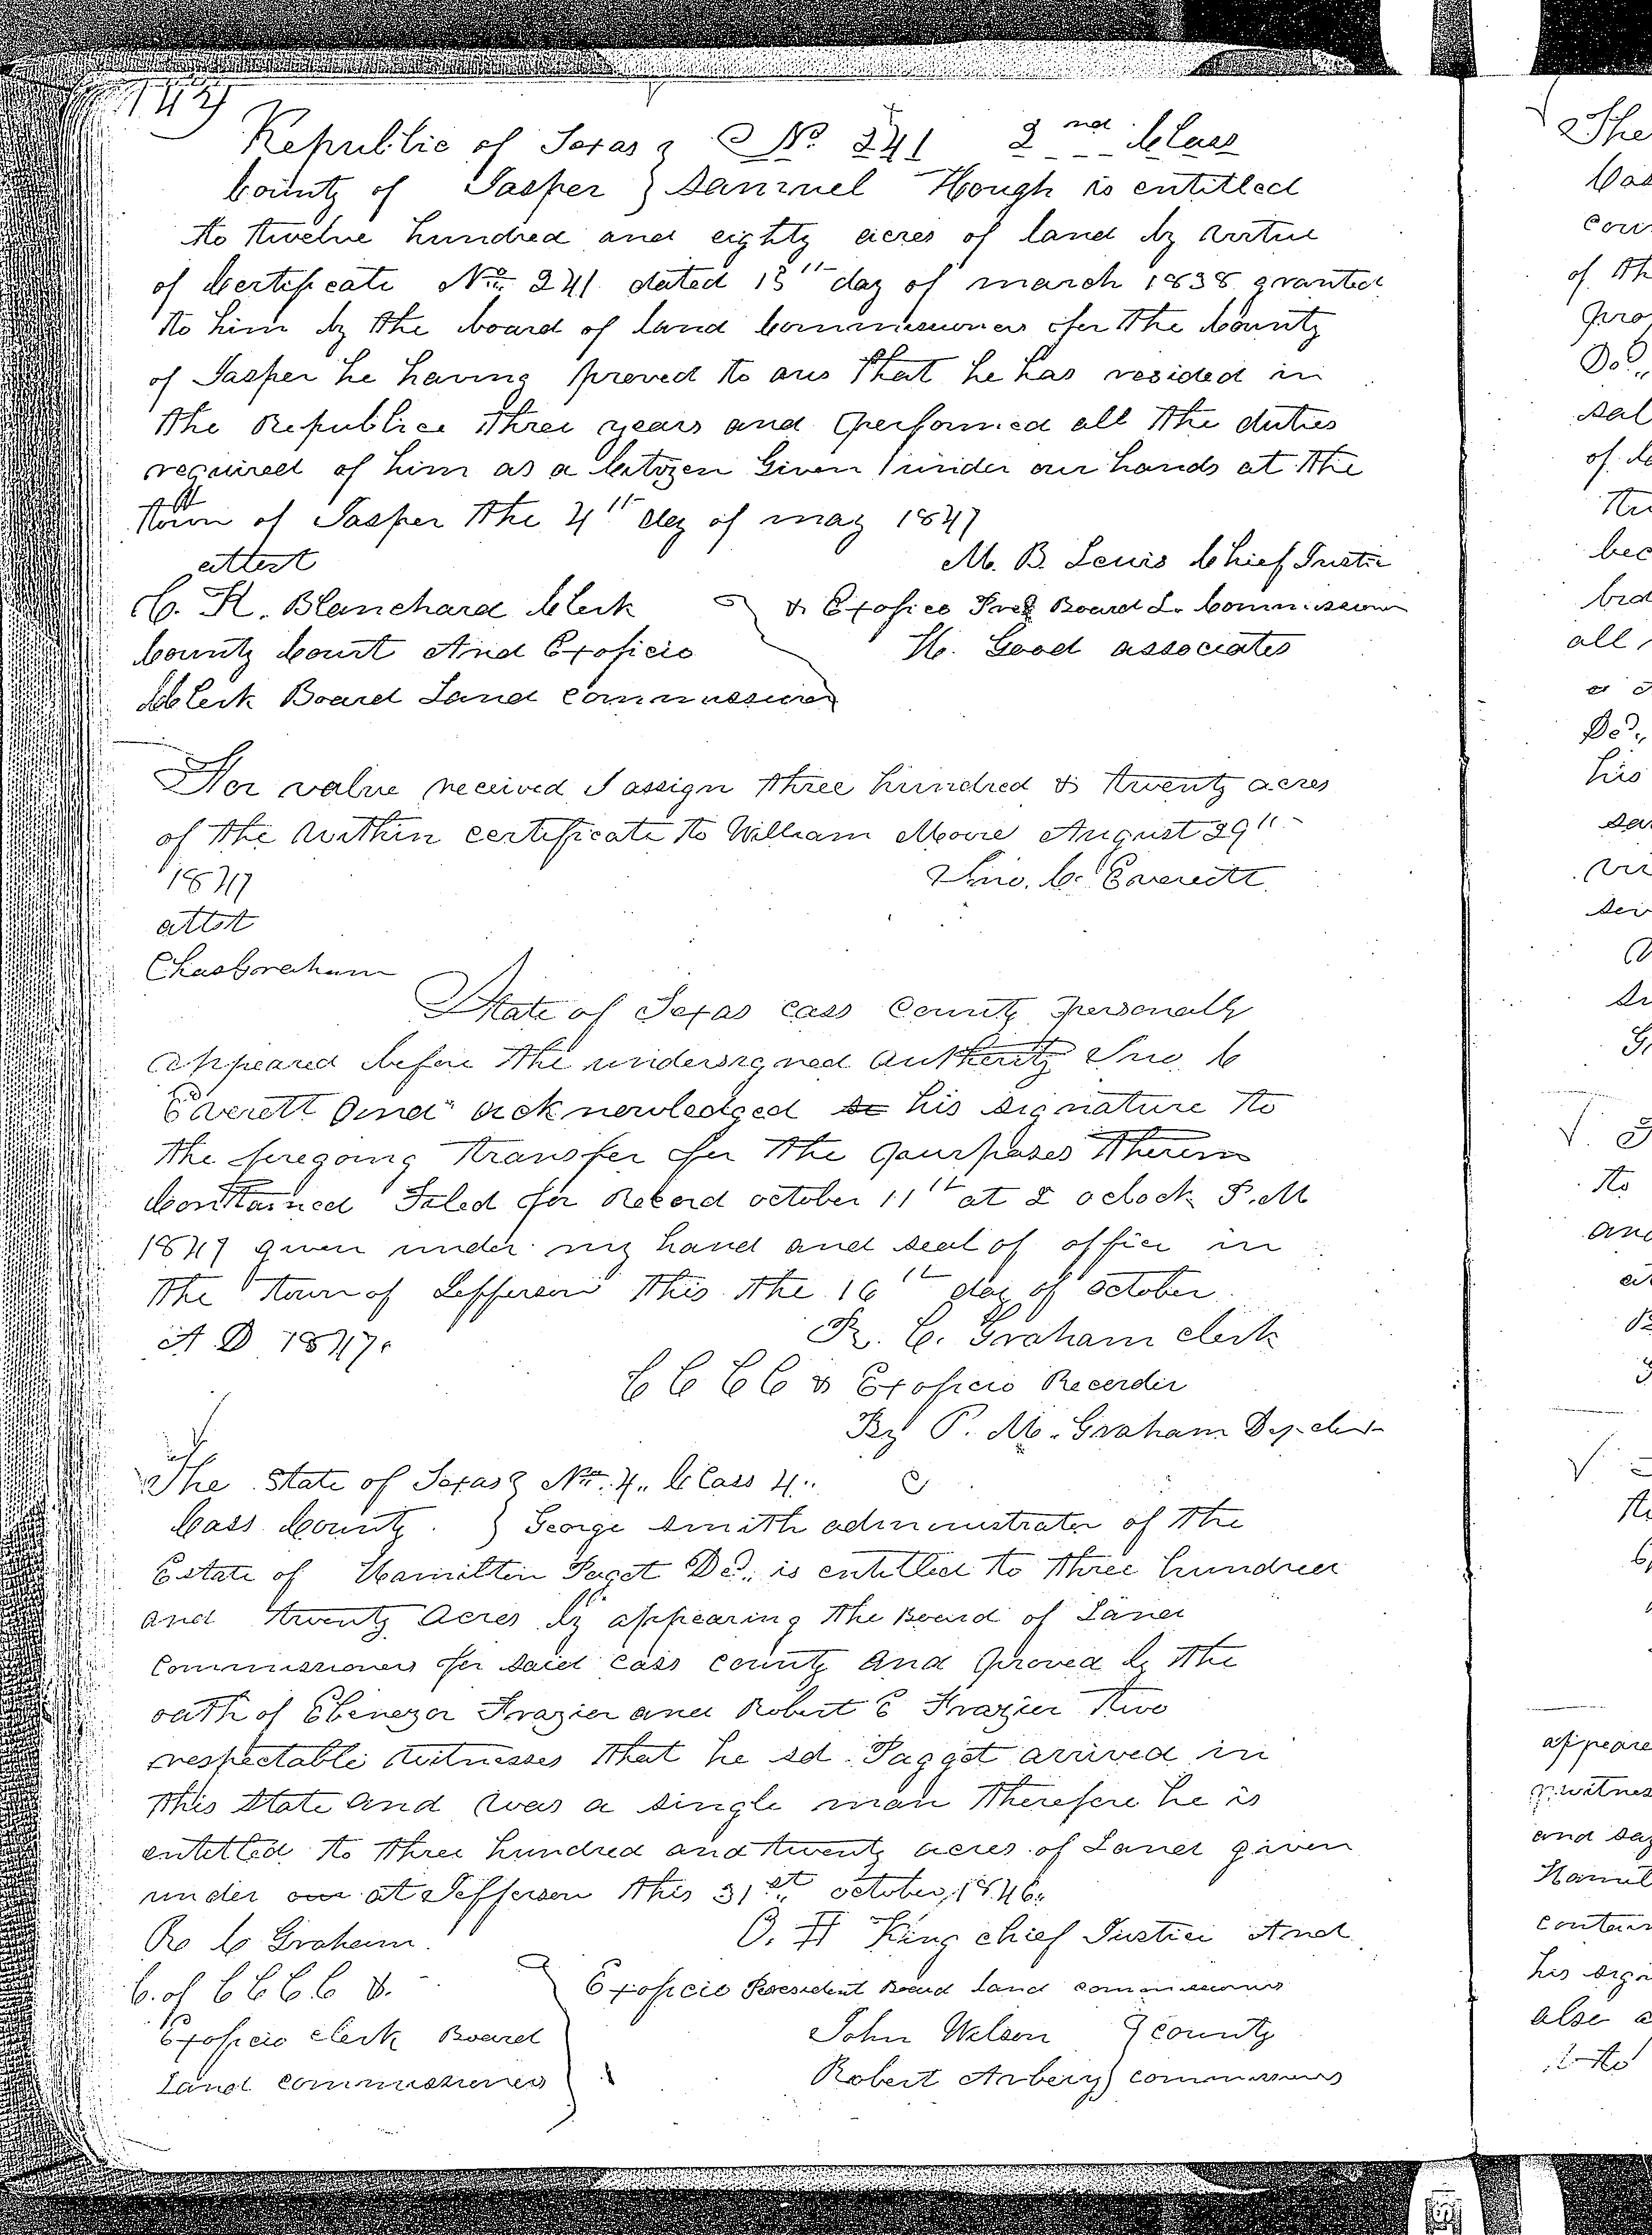 144
Republic of Texas } No. 241 2nd Class
County of Jasper } Samuel Hough is entitled
to twelve hundred and eighty acres of land by virtue
of Certificate No. 241 dated 13th day of march 1838 granted
to him by the board of land Commissioners for the County
of Jasper he having proved to ous that he has resided in
the Republice three years and performed all the duties
required of him as a Citozen Given under our hands at the
town of Jasper the 4th day of may 1847
attest M. B. Lewis Chief Justice
C. K. Blanchard Clerk & Exofico Pres Board L. Commissioner
County Court And Exoficio H. Good associates
Clerk Board Land Commissioner
For value received I assign three hundred & twenty acres
of the within certificate to William Moore August 29th
1847 Jno. C. Everett
attest
Chas Graham
State of Texas cass County personally
appeared before the undersigned authority Jno. C
Everett And acknowledged his signature to
the foregoing transfer for the purposes therein
Contained Filed for Record october 11th at 2 oclock P.M
1847 given under my hand and seal of office in
the town of Jefferson this the 16th day of october
A D 1847. R. C. Graham clerk
C C C C & Exoficio Recorder
By P. M. Graham Dep. clerk
The State of Texas } No. 4.. Class 4..
Cass County. } George Smith administrator of the
Estate of Hamilton Paget Decd.. is entitled to three hundred
and twenty Acres by appearing the Board of Land
Commissioners for said cass county and proved by the
oath of Ebenezor Frazier and Robert E Frazier two
respectable witnesses that he sd. Pagget arrived in
this State and was a single man therefore he is
entitled to three hundred and twenty acres of Land given
under our at Jefferson this 31st october, 1846.
R C Graham. O. H King chief Justice And
C. of C C C C &. Exoficio President Board Land commissioners
Exoficio clerk Board John Wilson } county
Land commissioners Robert Arbery } commissioners